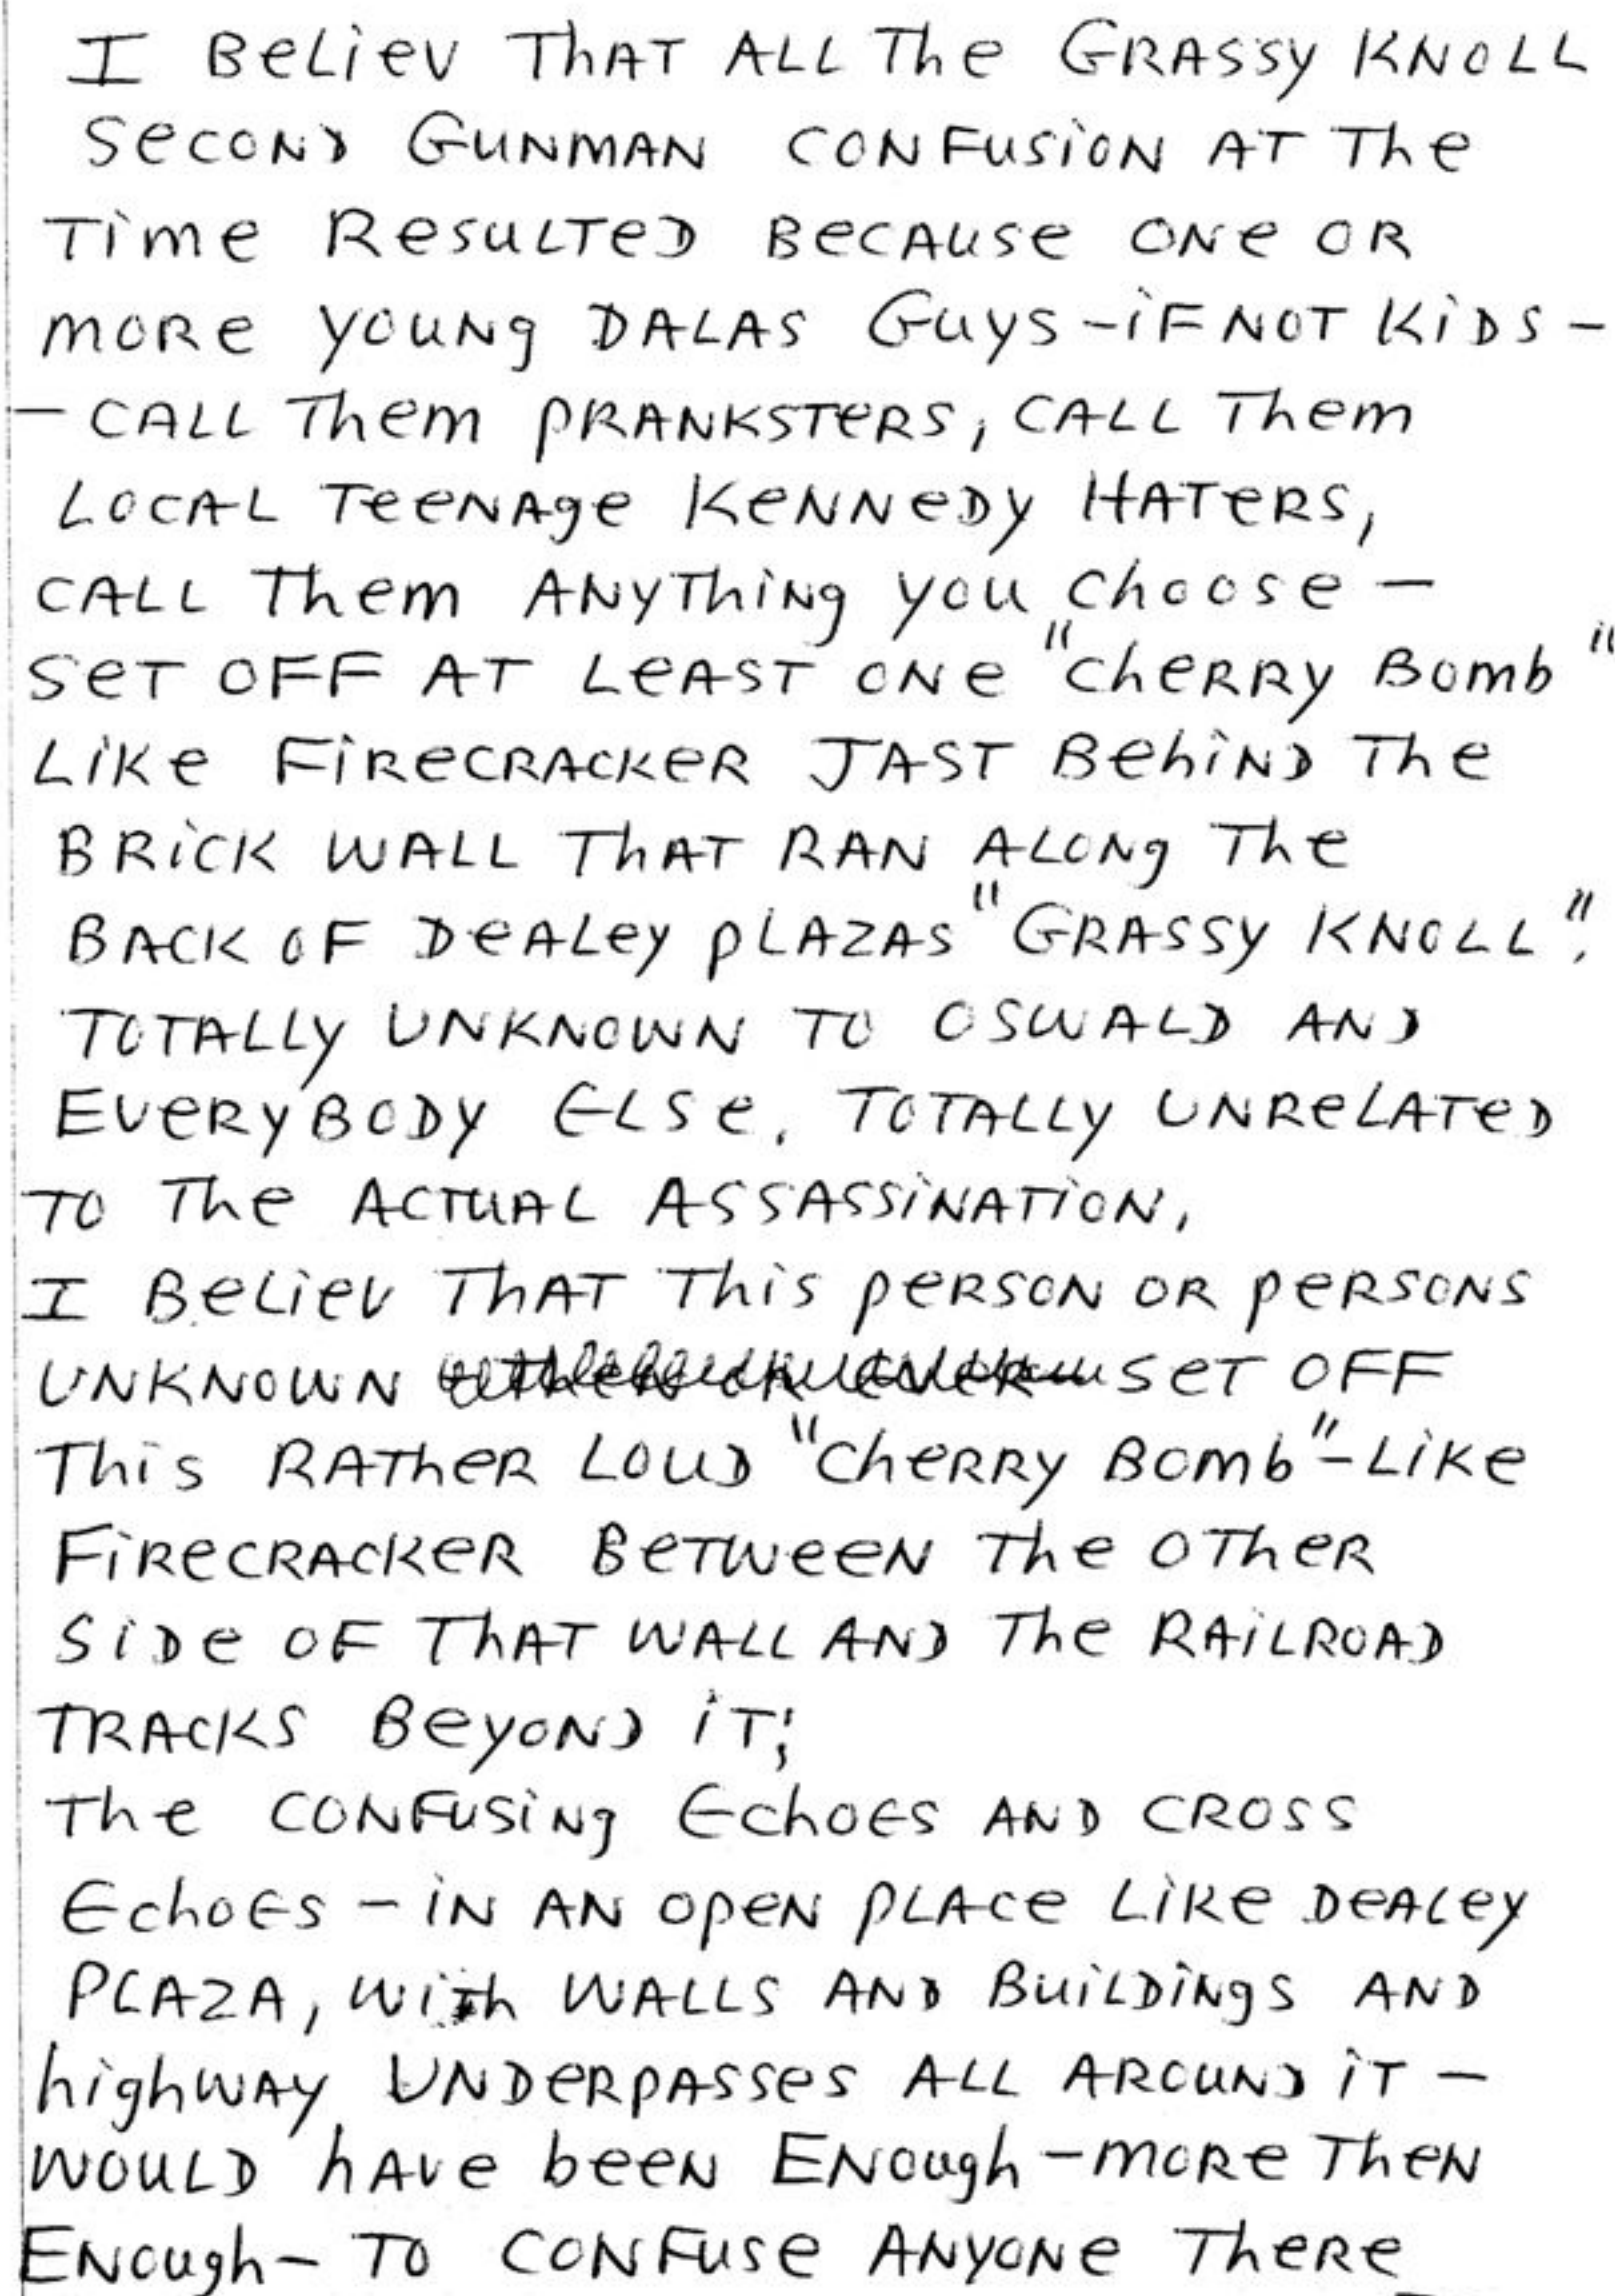 I BeLiev ThAT ALL The GRASSY KNOLL
SeCOND GUNMAN CONFUSiON AT The
TiMe ReSULTeD BeCAUSe ONe OR
MORe YOUNg DALAS GUYS -iF NOT KiDS -
- CALL TheM PRANKSTeRS, CALL TheM
LOCAL TeeNAge KeNNeDY HATeRS,
CALL TheM ANYThiNg YOU ChOOSe -
SeT OFF AT LeAST ONe "CheRRY BOMb"
LiKe FiReCRACKeR JAST BehiND The
BRiCK WALL ThAT RAN ALONg The
BACK OF DeALeY PLAZAS "GRASSY KNOLL".
TOTALLY UNKNOWN TO OSWALD AND
EVeRYBODY ELSe. TOTALLY UNReLATeD
TO The ACTUAL ASSASSiNATiON.
I BeLiev ThAT ThiS PeRSON OR PeRSONS
UNKNOWN SeT OFF
ThiS RATheR LOUD "CheRRY BOMb"-LiKe
FiReCRACKeR BeTWeeN The OTheR
SiDe OF ThAT WALL AND The RAiLROAD
TRACKS BeYOND iT;
The CONFUSiNg EChOES AND CROSS
EChOES - iN AN OPeN PLACe LiKe DeALeY
PLAZA, WiTh WALLS AND BUiLDiNgS AND
highWAY UNDeRPASSeS ALL AROUND iT -
WOULD hAve beeN ENOugh - MORe TheN
ENOugh - TO CONFUSe ANYONe TheRe